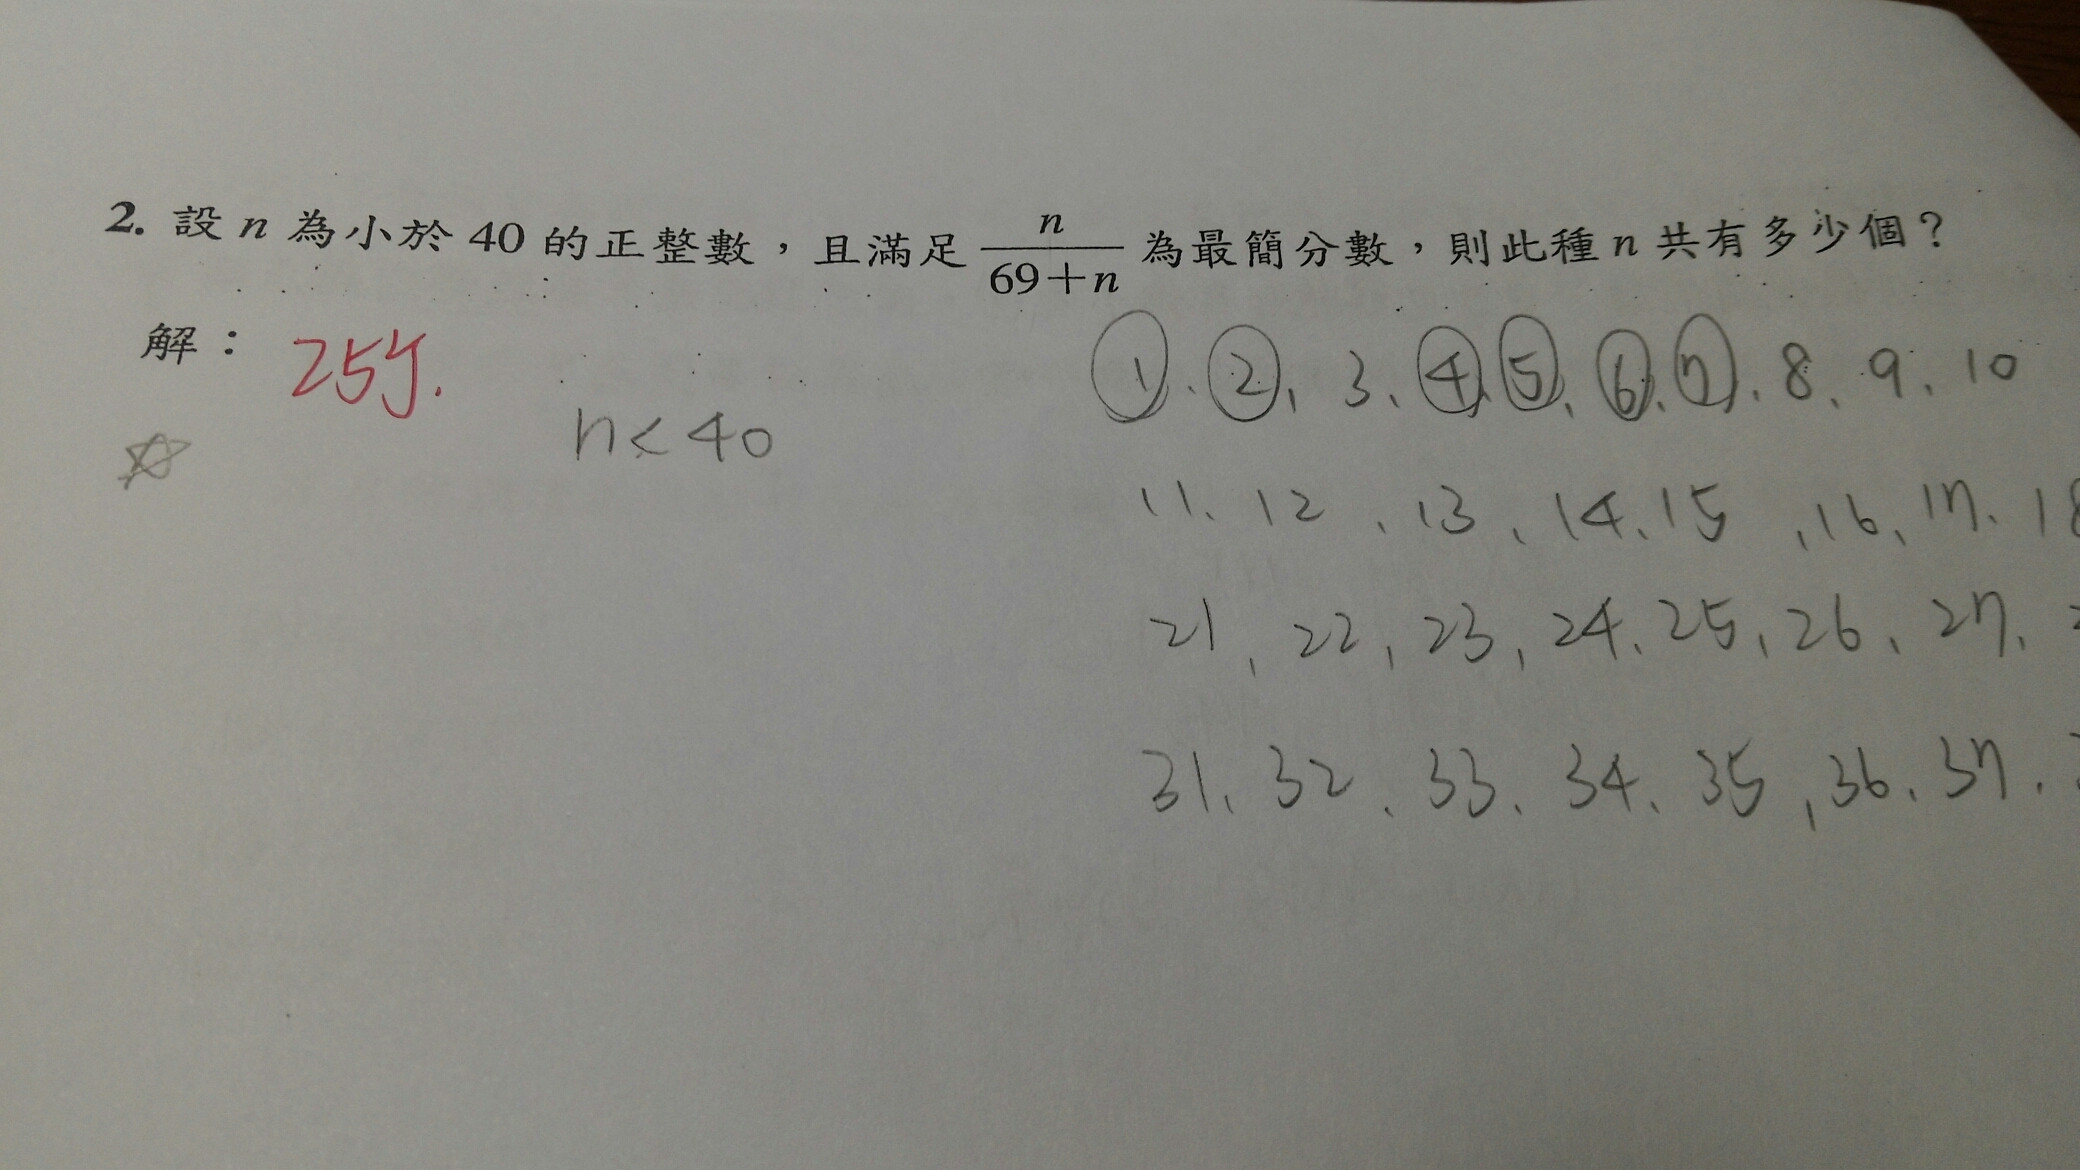 2. 設 n 為小於 40 的正整數，且滿足 n/(69+n) 為最簡分數，則此種 n 共有多少個？
解：
25個.
n<40
①、②、3、④、⑤、⑥、⑦、8、9、10
11、12、13、14、15、16、17、18
21、22、23、24、25、26、27、
31、32、33、34、35、36、37、